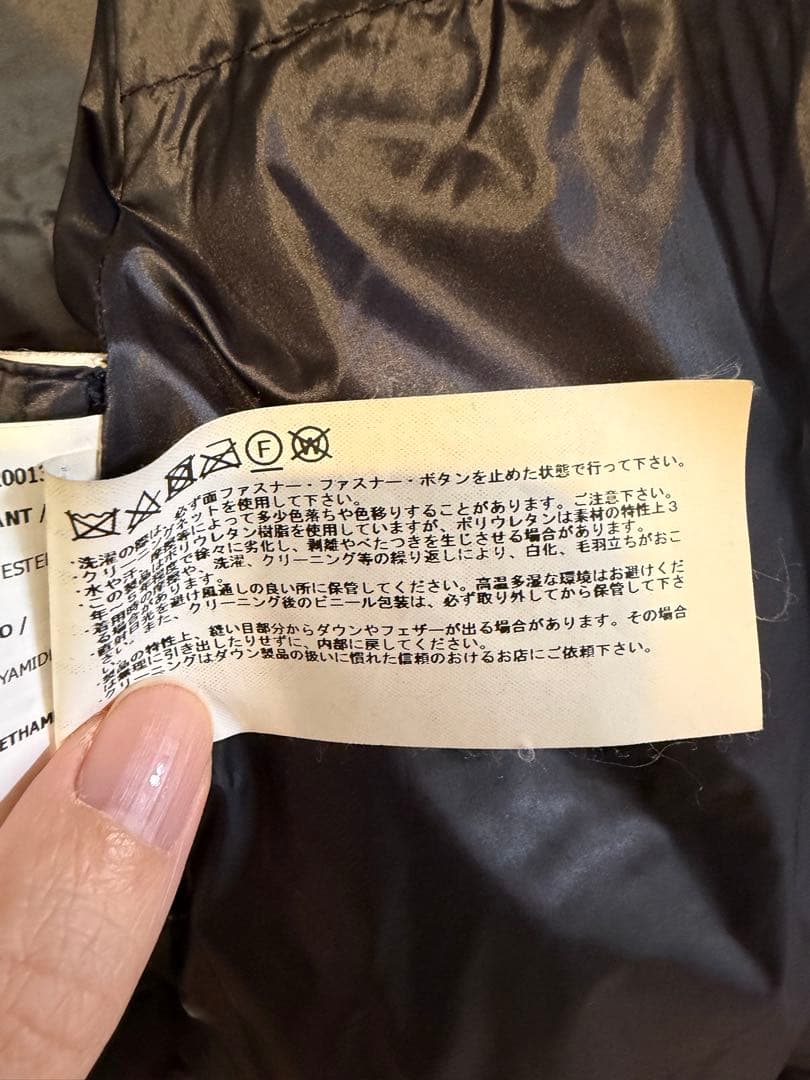 2001
ANT /
ESTE
O /
YAMID
ETHAM
F
W
・洗濯の際は、必ず面ファスナー・ファスナー・ボタンを止めた状態で行って下さい。
・クリーニングネットを使用して下さい。
・水や汗、摩擦等によって多少色落ちや色移りすることがあります。ご注意下さい。
・この製品はポリウレタン樹脂を使用していますが、ポリウレタンは素材の特性上3
年～5年程度で徐々に劣化し、剥離やべたつきを生じさせる場合があります。
・着用時の摩擦や、洗濯、クリーニング等の繰り返しにより、白化、毛羽立ちがおこ
る場合があります。
・直射日光を避け風通しの良い所に保管してください。高温多湿な環境はお避けくだ
さい。また、クリーニング後のビニール包装は、必ず取り外してから保管して下さ
・製品の特性上、縫い目部分からダウンやフェザーが出る場合があります。その場合
は無理に引き出したりせずに、内部に戻してください。
・クリーニングはダウン製品の扱いに慣れた信頼のおけるお店にご依頼下さい。